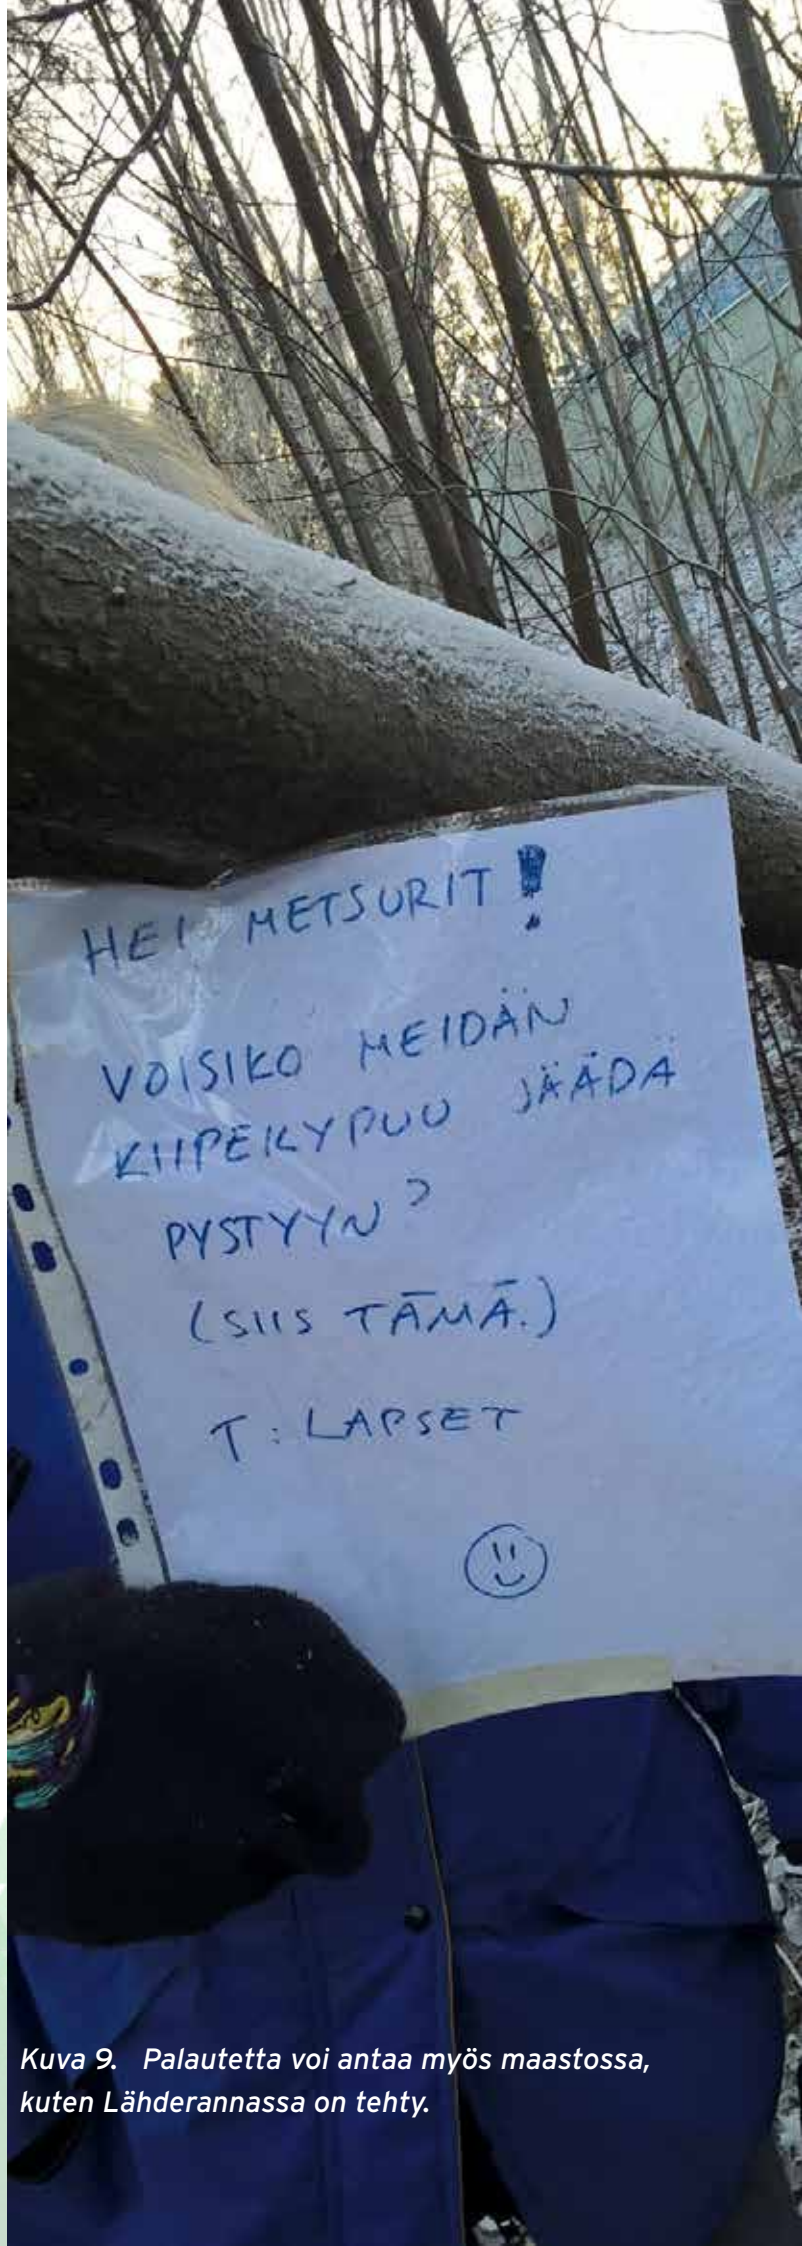 HEI METSURIT!
VOISIKO MEIDÄN
KIIPEILYPUU JÄÄDÄ
PYSTYYN?
(SIIS TÄMÄ.)
T: LAPSET
Kuva 9. Palautetta voi antaa myös maastossa,
kuten Lähderannassa on tehty.